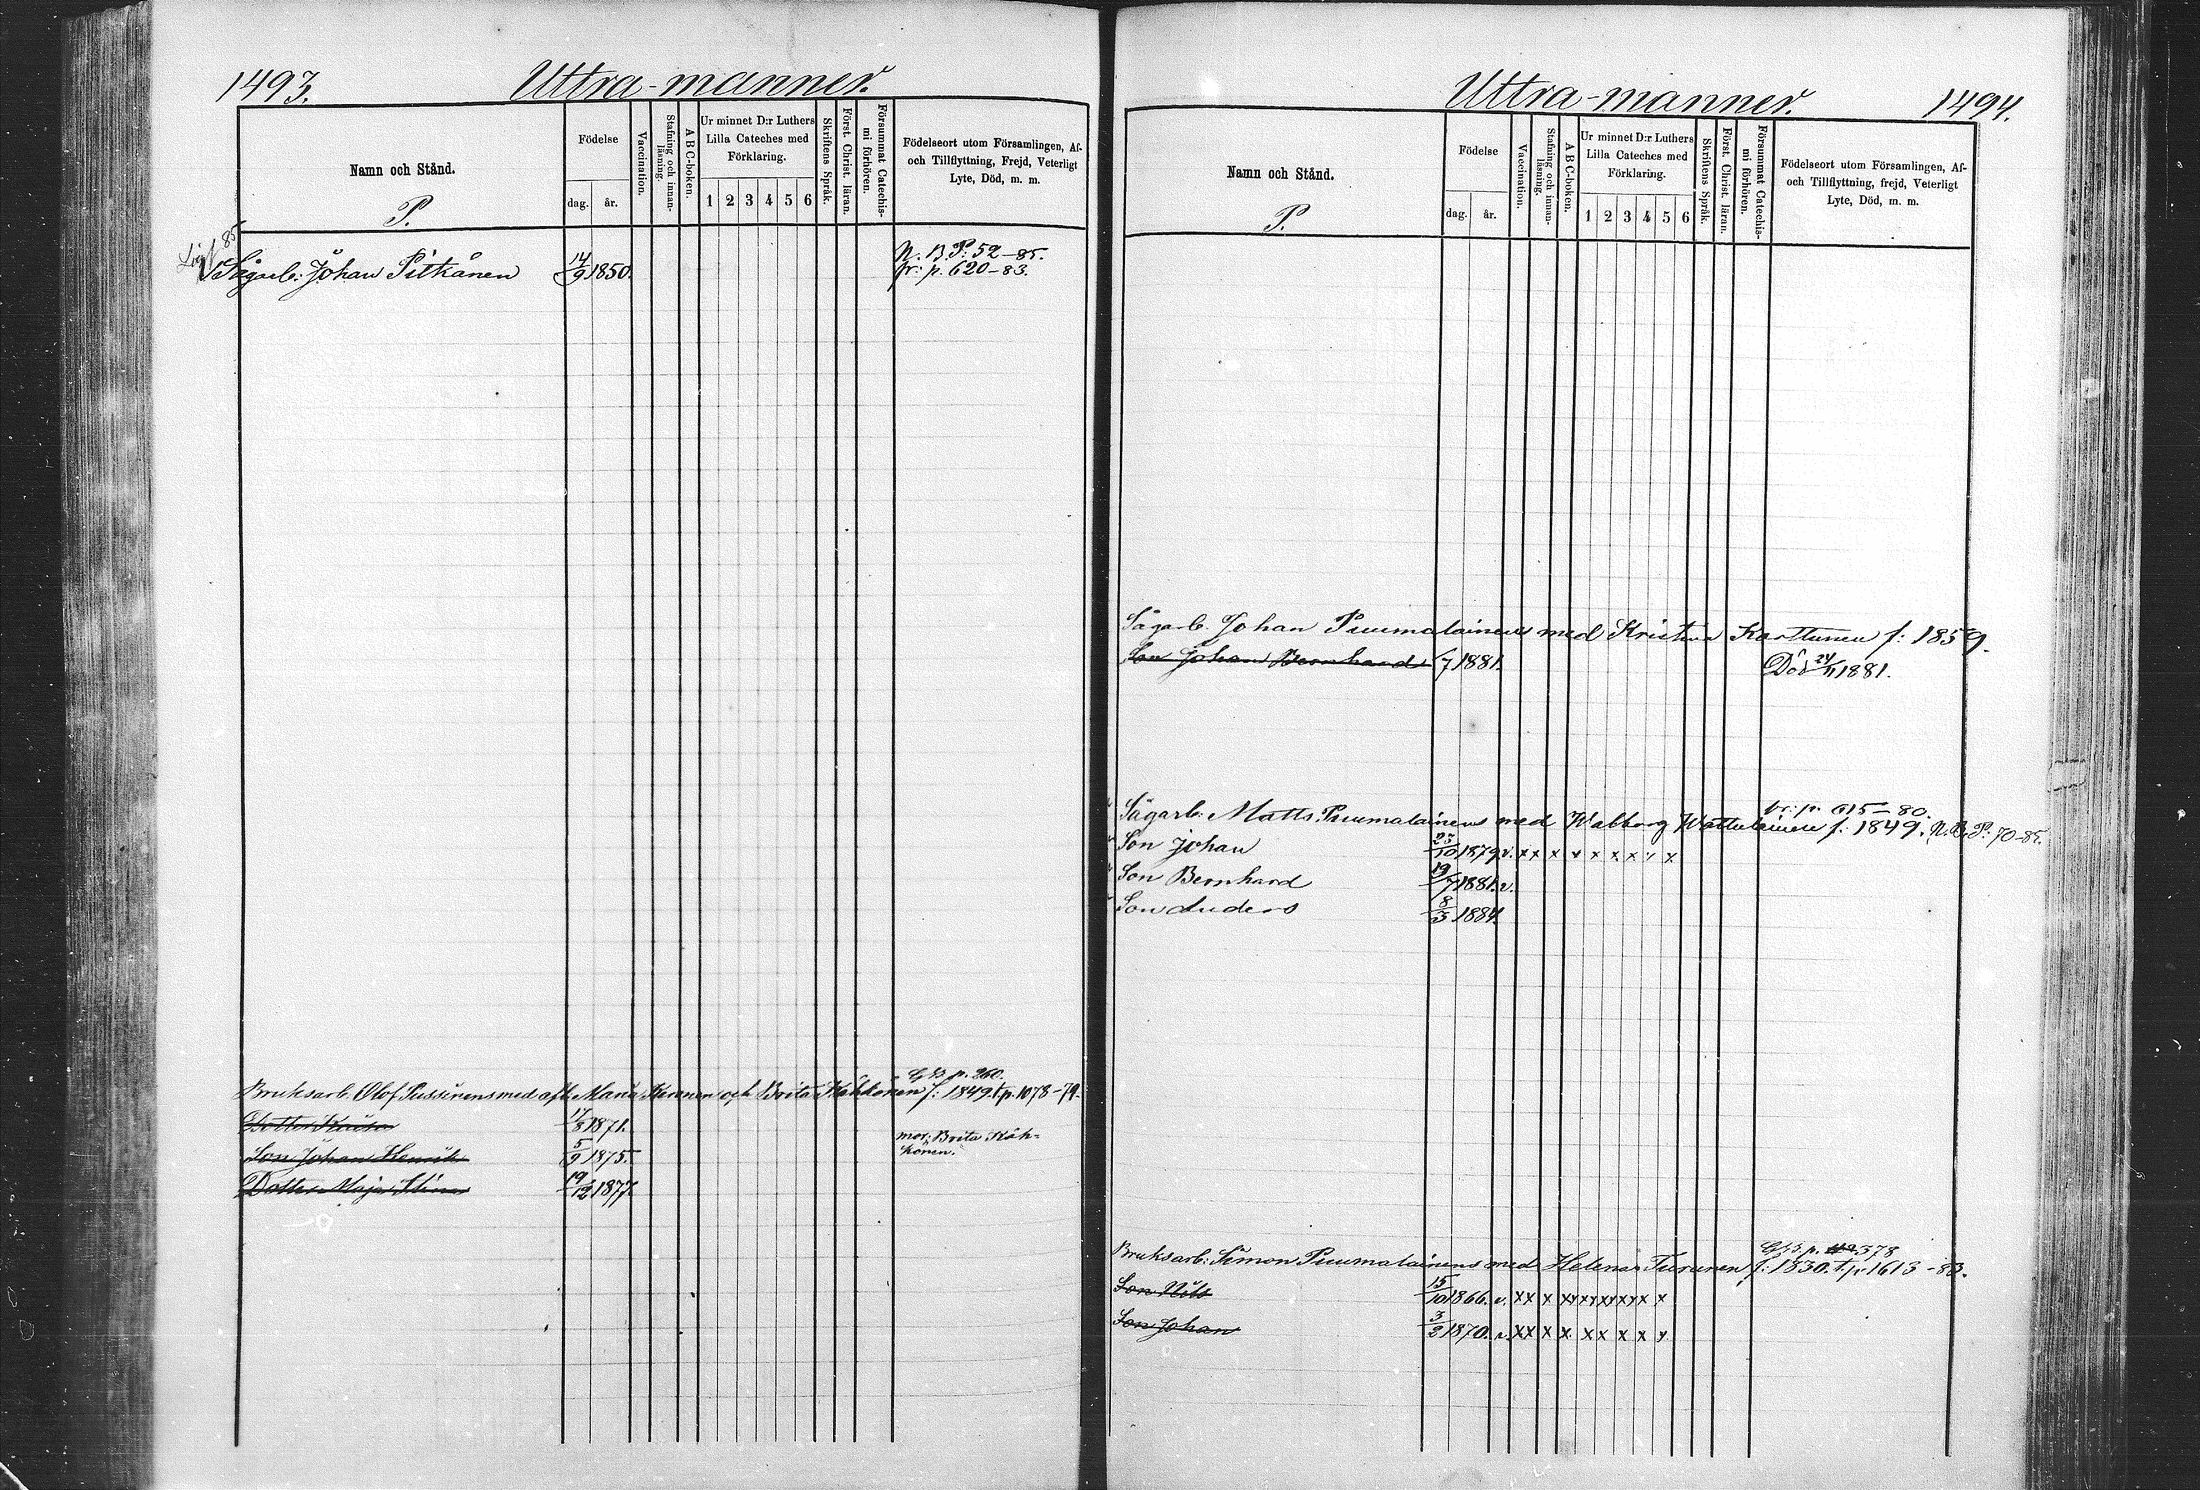 1493.
Uttra-manner.
Namn och Stånd.
Födelse
dag.
år.
Vaccination.
Stafning och innan-läsning.
A B C-boken.
Ur minnet D:r Luthers
Lilla Cateches med
Förklaring.
1 2 3 4 5 6
Skriftens Språk.
Först. Christ. läran.
Försummat Catechis-mi förhören.
Födelseort utom Församlingen, Af-
och Tillflyttning, Frejd, Veterligt
Lyte, Död, m. m.
P.
85
Sågarb. Johan Pitkänen 14/9 1850. N. B. P: 52-85.
fr: p. 620-83.
G B p. 260.
Bruksarb. Olof Pussinens med afl. Maria och Brita Kähkönen f: 1849. t.p. 1078-79.
Dotter 17/8 1871.
mor: Brita Käh-
könen.
Son Johan Henrik 5/9 1875.
Dotter Maja Stina 19/12 1877.
Uttra-manner.
1494.
Namn och Stånd.
Födelse
dag.
år.
Vaccination.
Stafning och innan-läsning.
A B C-boken.
Ur minnet D:r Luthers
Lilla Cateches med
Förklaring.
1 2 3 4 5 6
Skriftens Språk.
Först. Christ. läran.
Försummat Catechis-mi förhören.
Födelseort utom Församlingen, Af-
och Tillflyttning, frejd, Veterligt
Lyte, Död, m. m.
P.
Sågarb. Johan Puumalainens med Kristina Karttunen f: 1859.
Son Johan Bernhard 1/7 1881. Död 24/11 1881.
fr: p. 615-80.
Sågarb: Matts Puumalainens med Walborg f: 1849. N. B. P: 70-85.
Son Johan 23/10 1879 v. x x x x x x x x x
Son Bernhard 19/7 1881. v.
Son Anders 8/3 1884.
G B p. 378
Bruksarb: Simon Puumalainens med Helena Turunen f: 1830. t.p. 1613-83.
Son Nils 15/10 1866. v. x x x x x x x x x
Son Johan 3/2 1870. v. x x x x x x x x x